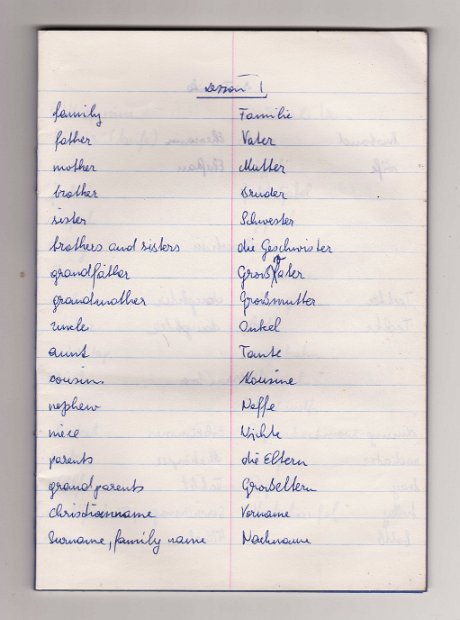 Lesson 1
family Familie
father Vater
mother Mutter
brother Bruder
sister Schwester
brothers and sisters die Geschwister
grandfather Großvater
grandmother Großmutter
uncle Onkel
aunt Tante
cousin Kousine
nephew Neffe
niece Nichte
parents die Eltern
grandparents Großeltern
christianname Vorname
Surname, family name Nachname